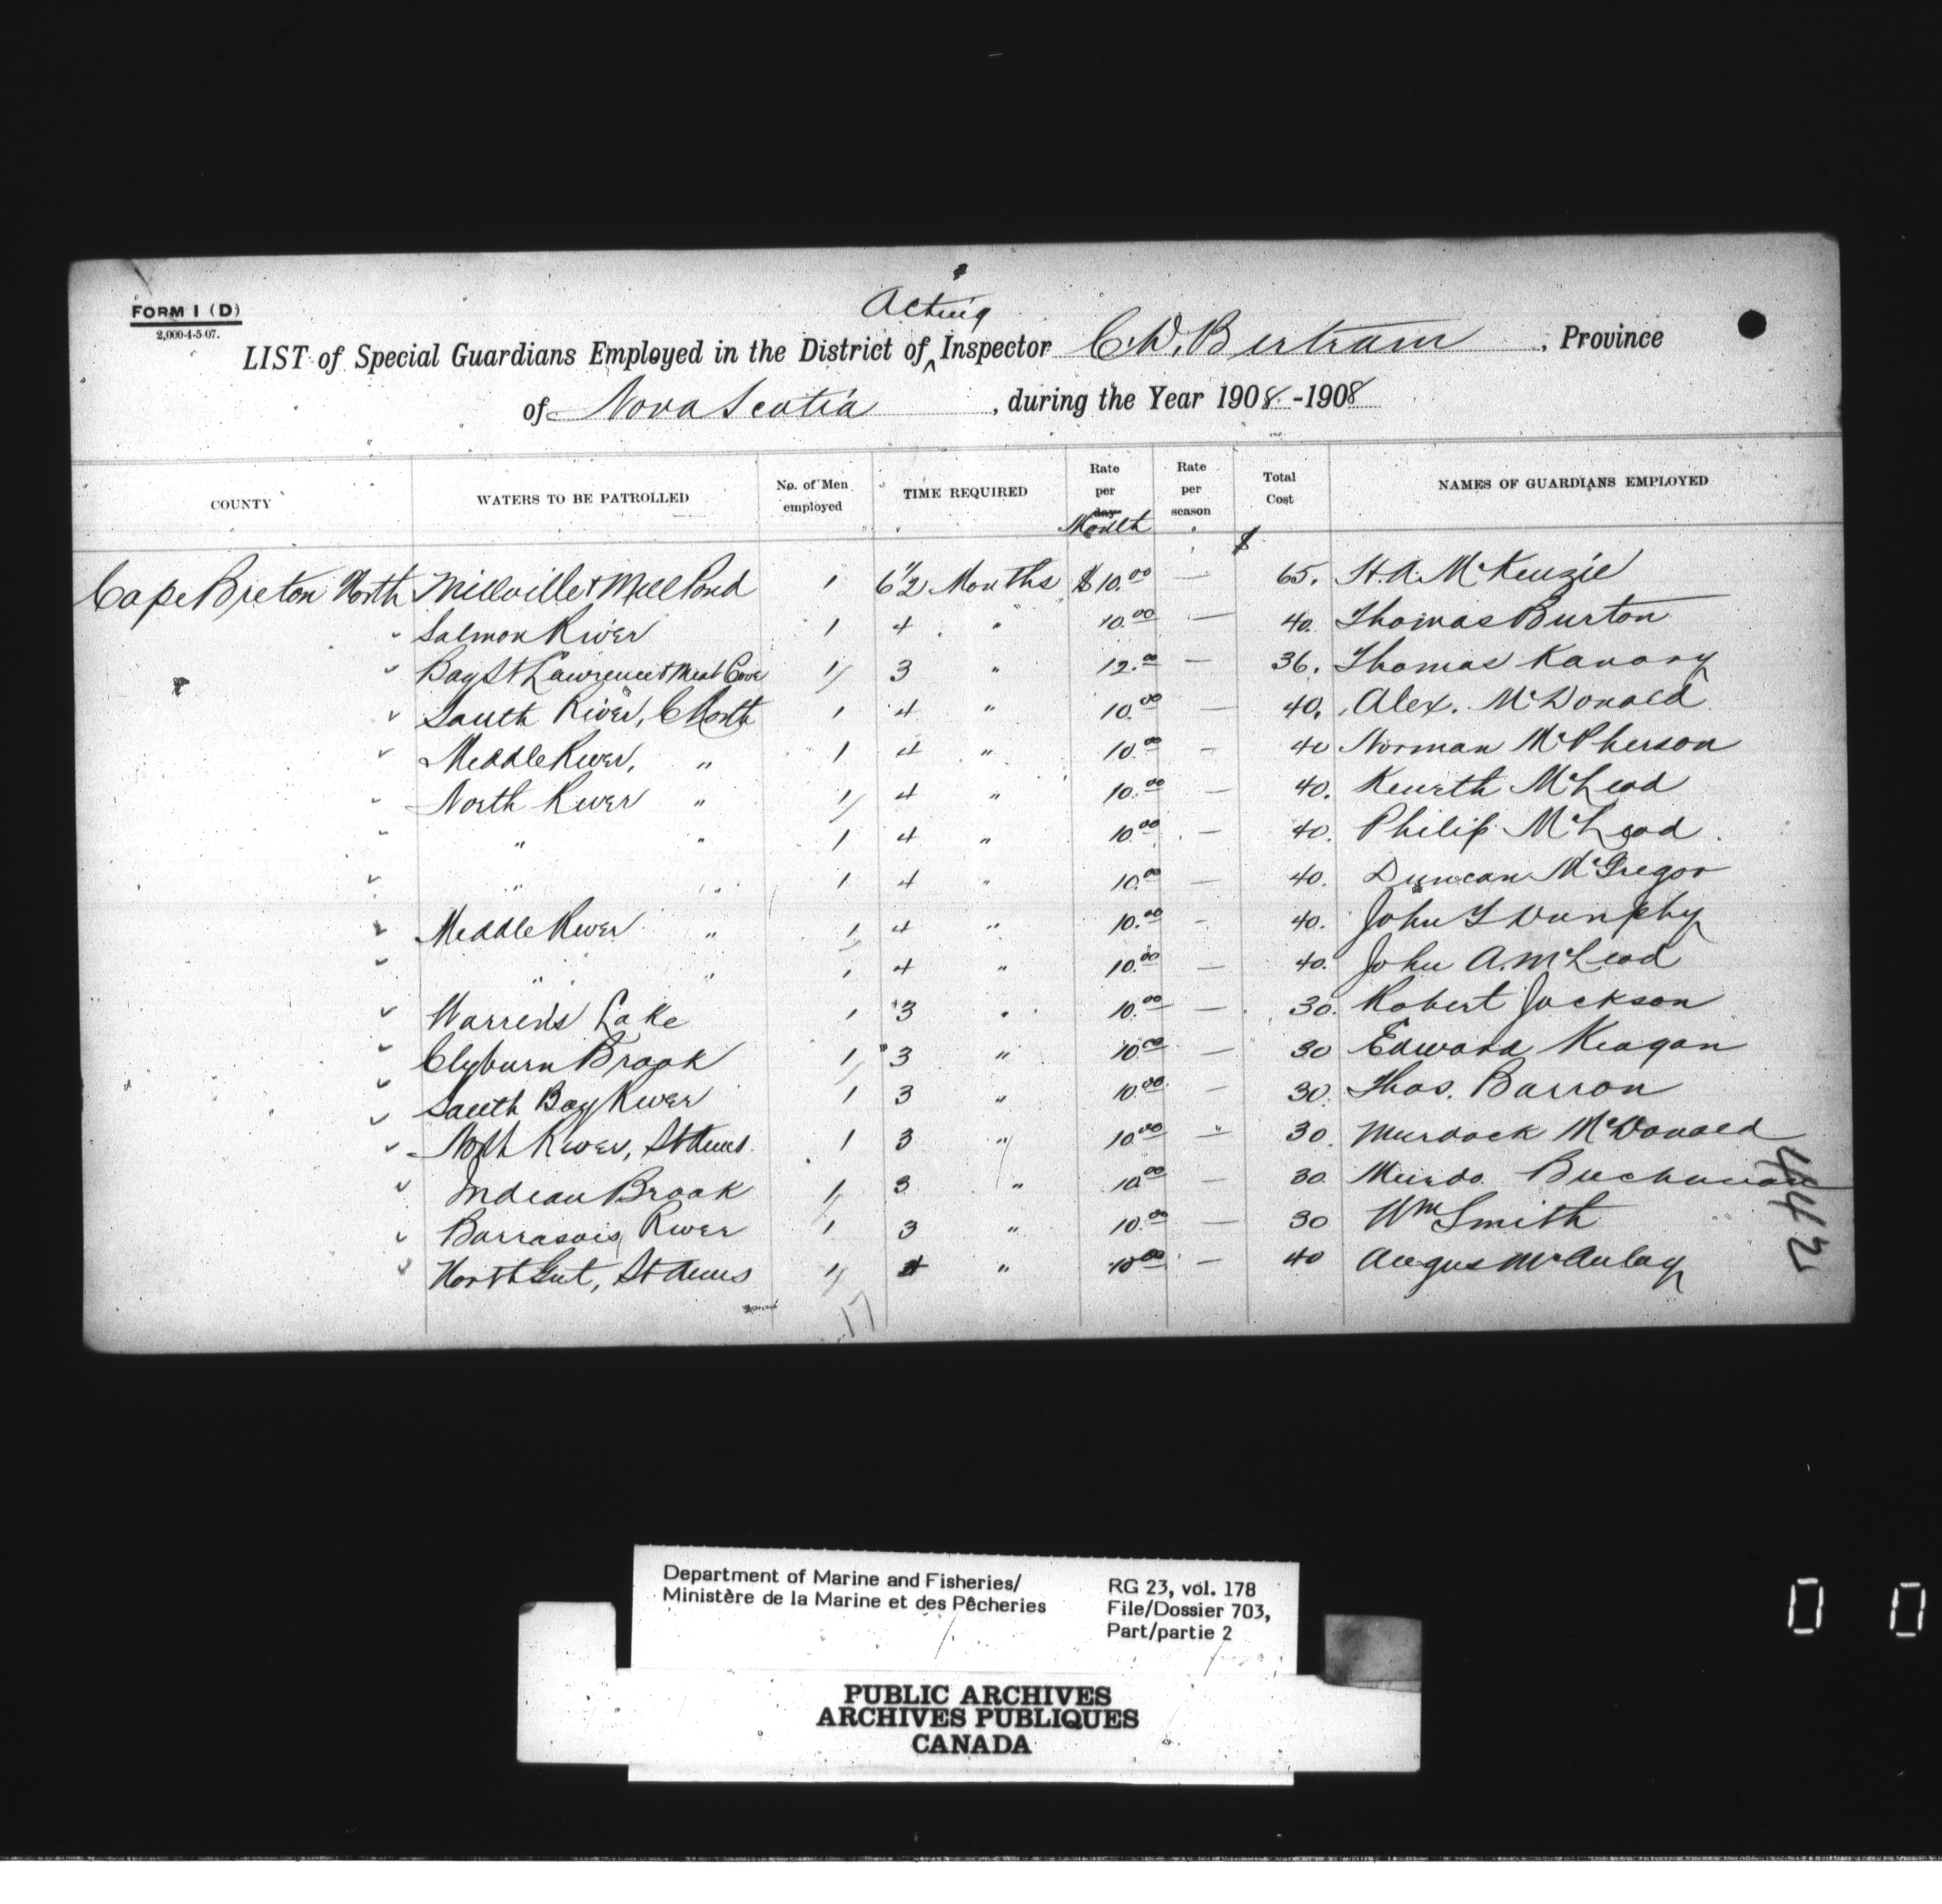 FORM 1 (D)
2,000-4-5-07.
Acting
LIST of Special Guardians Employed in the District of ^ Inspector C.W. Bertram, Province
of Nova Scotia, during the Year 1908-1908
COUNTY WATERS TO BE PATROLLED No. of Men employed TIME REQUIRED Rate per day Month Rate per season Total Cost NAMES OF GUARDIANS EMPLOYED
$
Cape Breton North Millville & Mill Pond 1 6 1/2 Months $10.00 — 65. H.A. McKenzie
" Salmon River 1 4 " 10.00 — 40. Thomas Burton
" Bay St Lawrence & Meat Cove 1 3 " 12.00 — 36. Thomas Kanary
" South River, C North 1 4 " 10.00 — 40. Alex. McDonald
" Middle River, " 1 4 " 10.00 — 40 Norman McPherson
" North River " 1 4 " 10.00 — 40. Kenneth McLeod
" " " 1 4 " 10.00 — 40. Philip McLeod
" " " 1 4 " 10.00 — 40. Duncan McGregor
" Middle River " 1 4 " 10.00 - 40. John L Dunphy
" " " 1 4 " 10.00 — 40. John A. McLeod
" Warren's Lake 1 3 " 10.00 — 30. Robert Jackson
" Clyburn Brook 1 3 " 10.00 — 30 Edward Keagan
" South Bay River 1 3 " 10.00 — 30. Thos. Barron
" North River, St Anns. 1 3 " 10.00 " 30. Murdock McDonald
" Indian Brook 1 3 " 10.00 — 30 Murdo Buchanan
" Barrasois River 1 3 " 10.00 — 30 Wm Smith
" North Gut, St Anns 1 4 " 10.00 — 40 Angus McAulay
17
442
Department of Marine and Fisheries/
Ministère de la Marine et des Pêcheries
RG 23, vol. 178
File/Dossier 703,
Part/partie 2
PUBLIC ARCHIVES
ARCHIVES PUBLIQUES
CANADA
0 0